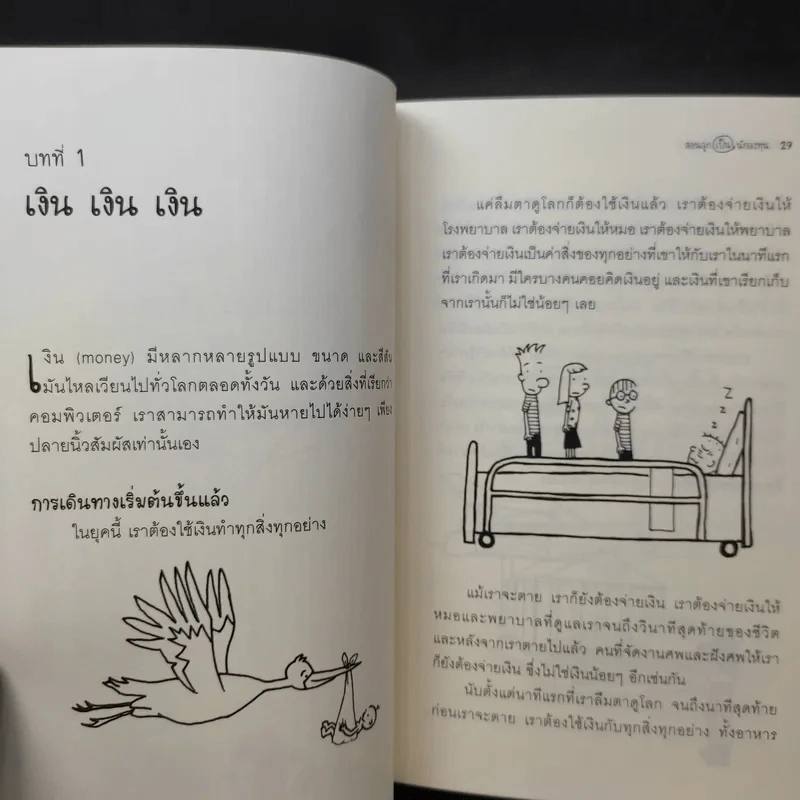 บทที่ 1
เงิน เงิน เงิน
เงิน (money) มีหลากหลายรูปแบบ ขนาด และสีสัน
มันไหลเวียนไปทั่วโลกตลอดทั้งวัน และด้วยสิ่งที่เรียกว่า
คอมพิวเตอร์ เราสามารถทำให้มันหายไปได้ง่ายๆ เพียง
ปลายนิ้วสัมผัสเท่านั้นเอง
การเดินทางเริ่มต้นขึ้นแล้ว
ในยุคนี้ เราต้องใช้เงินทำทุกสิ่งทุกอย่าง
สอนลูก เป็น นักลงทุน 29
แค่ลืมตาดูโลกก็ต้องใช้เงินแล้ว เราต้องจ่ายเงินให้
โรงพยาบาล เราต้องจ่ายเงินให้หมอ เราต้องจ่ายเงินให้พยาบาล
เราต้องจ่ายเงินเป็นค่าสิ่งของทุกอย่างที่เขาให้กับเราในนาทีแรก
ที่เราเกิดมา มีใครบางคนคอยคิดเงินอยู่ และเงินที่เขาเรียกเก็บ
จากเรานั้นก็ไม่ใช่น้อยๆ เลย
z
z
Z
แม้เราจะตาย เราก็ยังต้องจ่ายเงิน เราต้องจ่ายเงินให้
หมอและพยาบาลที่ดูแลเราจนถึงวินาทีสุดท้ายของชีวิต
และหลังจากเราตายไปแล้ว คนที่จัดงานศพและฝังศพให้เรา
ก็ยังต้องจ่ายเงิน ซึ่งไม่ใช่เงินน้อยๆ อีกเช่นกัน
นับตั้งแต่นาทีแรกที่เราลืมตาดูโลก จนถึงนาทีสุดท้าย
ก่อนเราจะตาย เราต้องใช้เงินกับทุกสิ่งทุกอย่าง ทั้งอาหาร